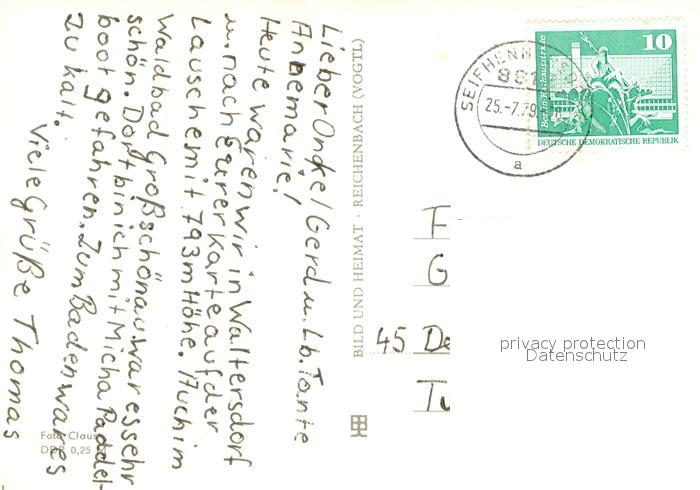 Lieber Onkel Gerd u. Lb. Tante
Annemarie!
Heute waren wir in Waltersdorf
u. nach eurer Karte auf der
Lausche mit 793m Höhe. Auch im
Waldbad Großschönau war es sehr
schön. Dort bin ich mit Micha Paddel-
boot gefahren. Zum Baden war es
zu kalt.
Viele Grüße Thomas
Foto Claus
DDR 0,25
BILD UND HEIMAT · REICHENBACH (VOGTL)
10
Berlin · Rathausstraße
DEUTSCHE DEMOKRATISCHE REPUBLIK
25.-7.79
a
F
G
45 De
privacy protection
Datenschutz